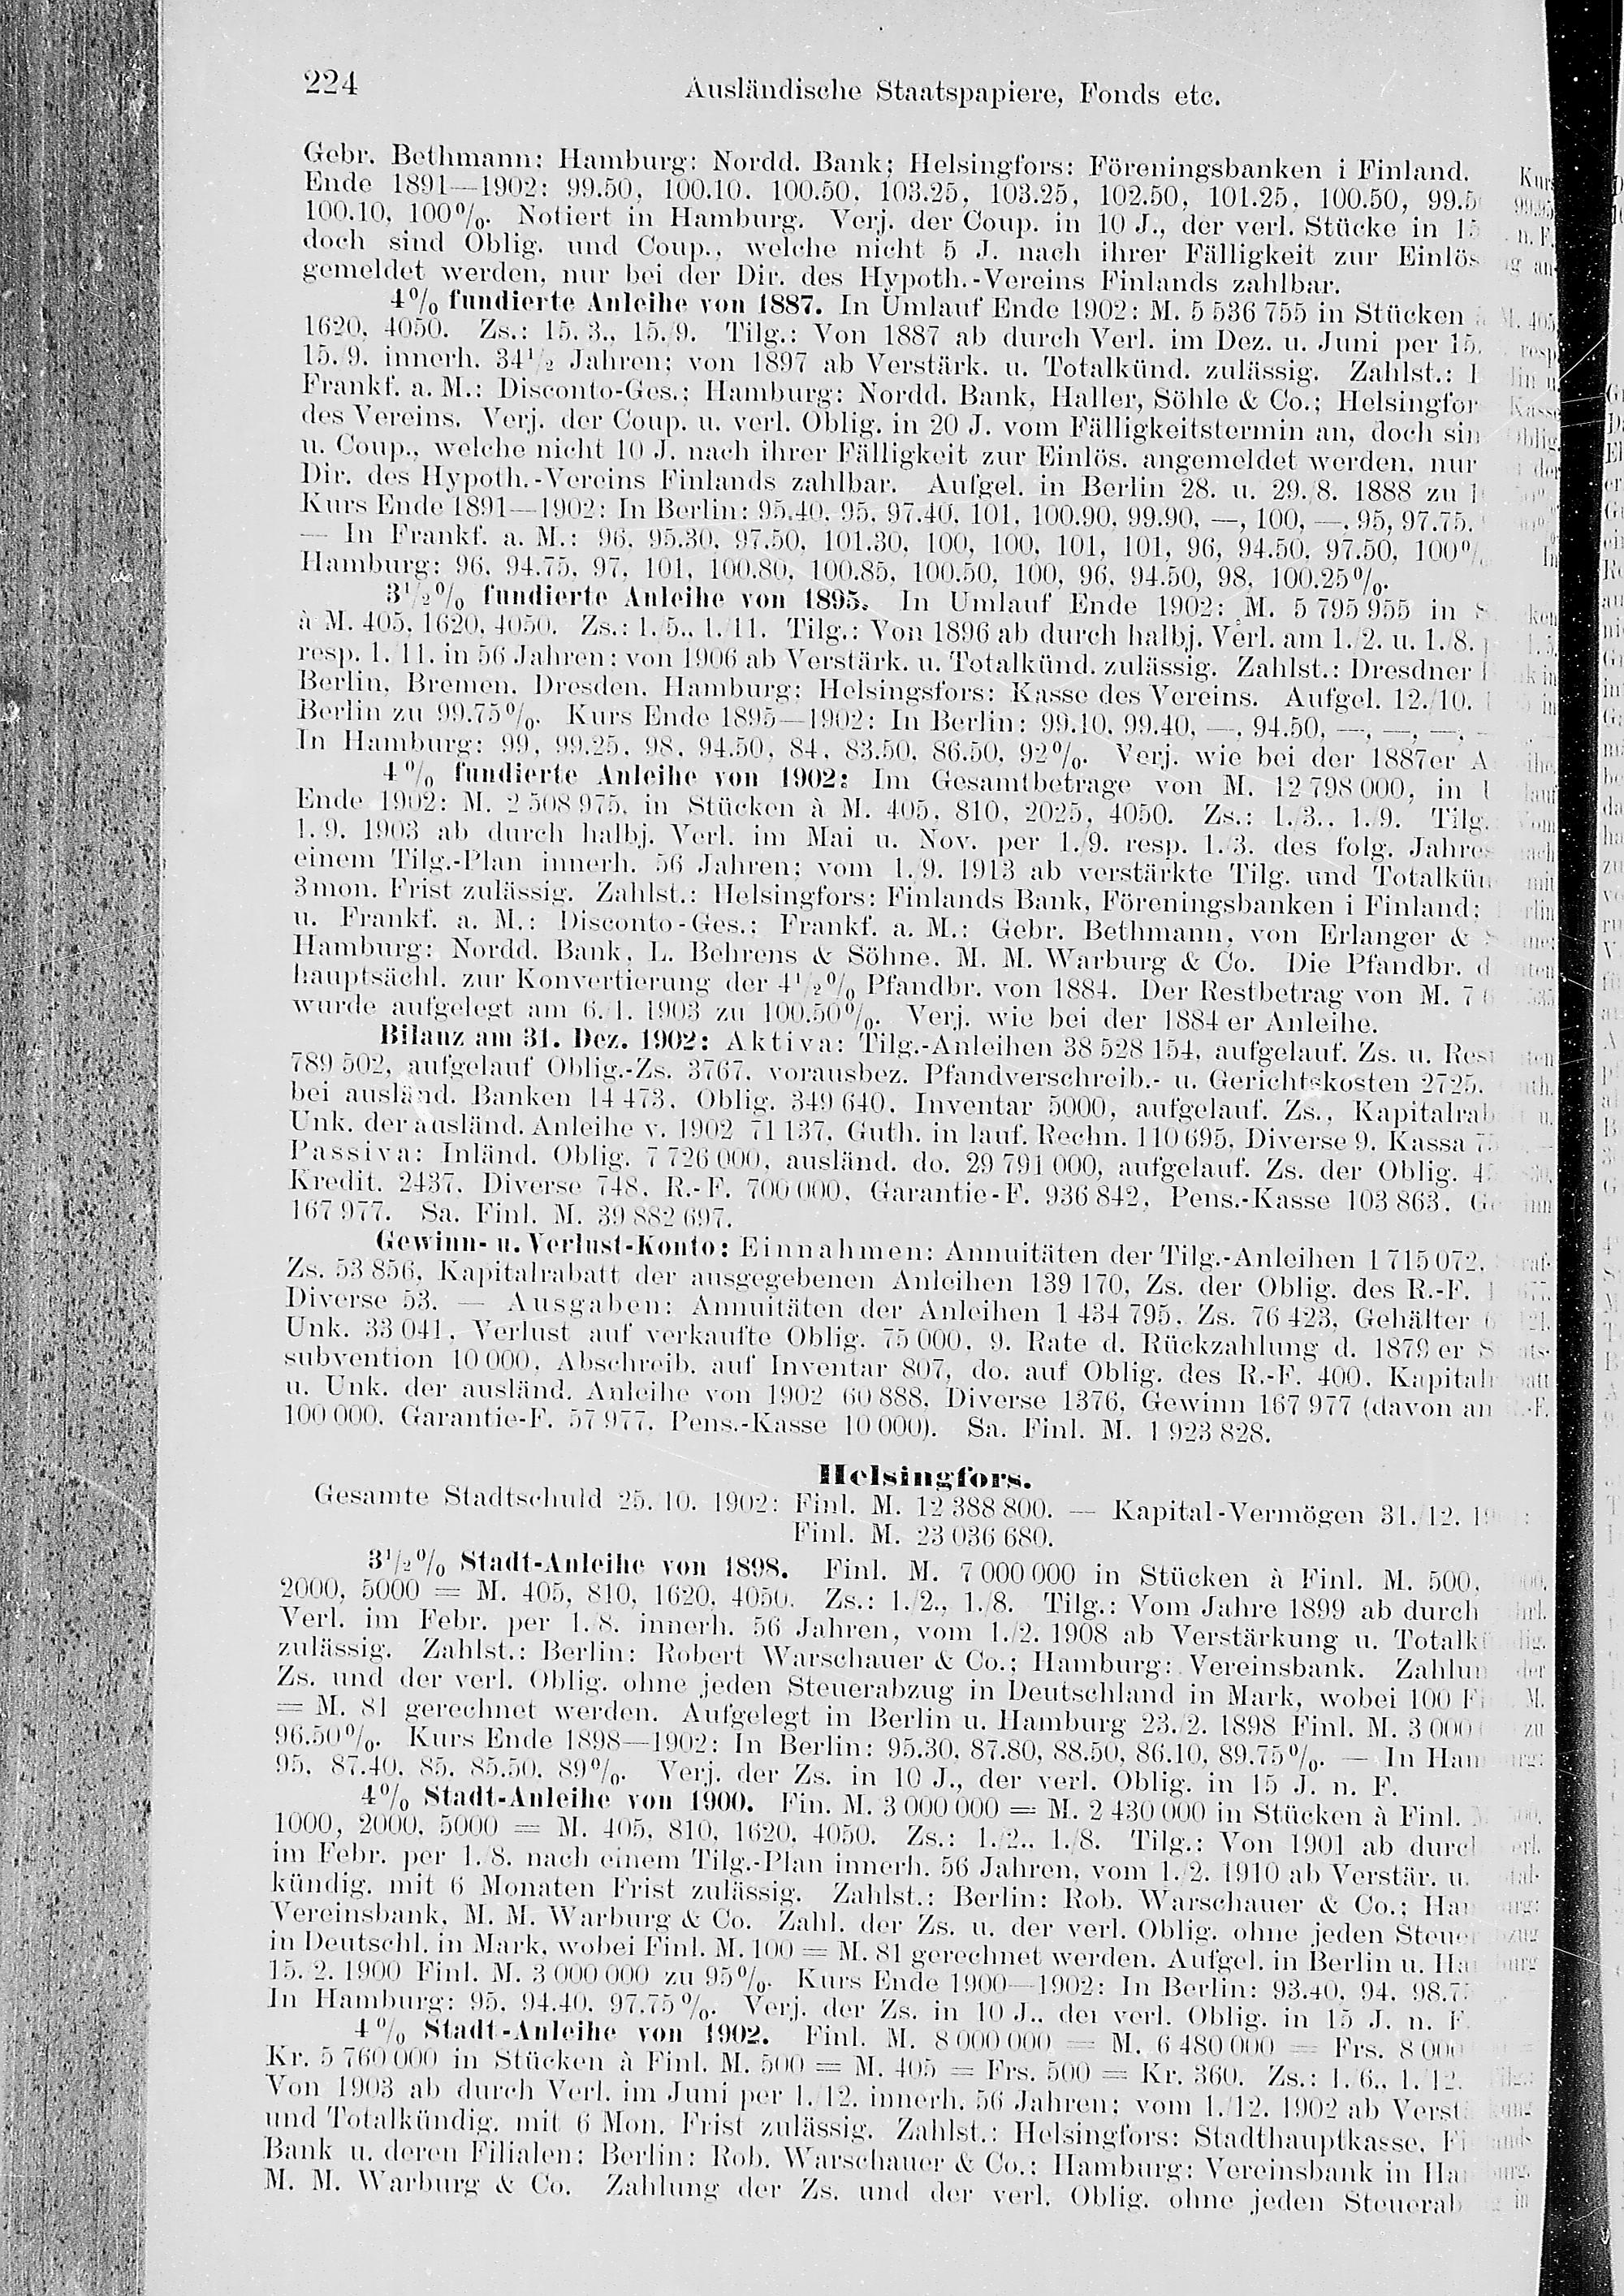 224 Ausländische Staatspapiere, Fonds etc.
Gebr. Bethmann; Hamburg: Nordd. Bank; Helsingfors: Föreningsbanken i Finland. Kurs
Ende 1891—1902: 99.50, 100.10, 100.50, 103.25, 103.25, 102.50, 101.25, 100.50, 99.5 99.95
100.10, 100%. Notiert in Hamburg. Verj. der Coup. in 10 J., der verl. Stücke in 15 n. F.
doch sind Oblig. und Coup., welche nicht 5 J. nach ihrer Fälligkeit zur Einlös g an
gemeldet werden, nur bei der Dir. des Hypoth.-Vereins Finlands zahlbar.
4% fundierte Anleihe von 1887. In Umlauf Ende 1902: M. 5 536 755 in Stücken à M. 405
1620, 4050. Zs.: 15. 3., 15./9. Tilg.: Von 1887 ab durch Verl. im Dez. u. Juni per 15. resp
15./9. innerh. 34½ Jahren; von 1897 ab Verstärk. u. Totalkünd. zulässig. Zahlst.: lin u
Frankf. a. M.: Disconto-Ges.; Hamburg: Nordd. Bank, Haller, Söhle & Co.; Helsingfor Kasse
des Vereins. Verj. der Coup. u. verl. Oblig. in 20 J. vom Fälligkeitstermin an, doch sin Oblig
u. Coup., welche nicht 10 J. nach ihrer Fälligkeit zur Einlös. angemeldet werden, nur der
Dir. des Hypoth.-Vereins Finlands zahlbar. Aufgel. in Berlin 28. u. 29./8. 1888 zu
Kurs Ende 1891—1902: In Berlin: 95.40, 95, 97.40, 101, 100.90, 99.90, —, 100, —, 95, 97.75,
— In Frankf. a. M.: 96, 95.30, 97.50, 101.30, 100, 100, 101, 101, 96, 94.50, 97.50, 100% In
Hamburg: 96, 94.75, 97, 101, 100.80, 100.85, 100.50, 100, 96, 94.50, 98, 100.25%.
3½% fundierte Anleihe von 1895. In Umlauf Ende 1902: M. 5 795 955 in S ken
à M. 405, 1620, 4050. Zs.: 1./5., 1./11. Tilg.: Von 1896 ab durch halbj. Verl. am 1./2. u. 1./8. 1.5.
resp. 1./11. in 56 Jahren; von 1906 ab Verstärk. u. Totalkünd. zulässig. Zahlst.: Dresdner k in
Berlin, Bremen, Dresden, Hamburg; Helsingsfors: Kasse des Vereins. Aufgel. 12./10. in
Berlin zu 99.75%. Kurs Ende 1895—1902: In Berlin: 99.10, 99.40, —, 94.50, —, —, —,
In Hamburg: 99, 99.25, 98, 94.50, 84, 83.50, 86.50, 92%. Verj. wie bei der 1887er A ihe
4% fundierte Anleihe von 1902: Im Gesamtbetrage von M. 12 798 000, in lauf
Ende 1902: M. 2 508 975, in Stücken à M. 405, 810, 2025, 4050. Zs.: 1./3., 1./9. Tilg. Vom
1./9. 1903 ab durch halbj. Verl. im Mai u. Nov. per 1./9. resp. 1./3. des folg. Jahres nach
einem Tilg.-Plan innerh. 56 Jahren; vom 1./9. 1913 ab verstärkte Tilg. und Totalkün mit
3mon. Frist zulässig. Zahlst.: Helsingfors: Finlands Bank, Föreningsbanken i Finland; rlin
u. Frankf. a. M.: Disconto-Ges.; Frankf. a. M.: Gebr. Bethmann, von Erlanger & S
Hamburg: Nordd. Bank, L. Behrens & Söhne, M. M. Warburg & Co. Die Pfandbr. d ten
hauptsächl. zur Konvertierung der 4½% Pfandbr. von 1884. Der Restbetrag von M. 7 6 535
wurde aufgelegt am 6./1. 1903 zu 100.50%. Verj. wie bei der 1884 er Anleihe.
Bilanz am 31. Dez. 1902: Aktiva: Tilg.-Anleihen 38 528 154, aufgelauf. Zs. u. Rest ten
789 502, aufgelauf Oblig.-Zs. 3767, vorausbez. Pfandverschreib.- u. Gerichtskosten 2725, uth.
bei ausländ. Banken 14 473, Oblig. 349 640, Inventar 5000, aufgelauf. Zs., Kapitalrab u.
Unk. der ausländ. Anleihe v. 1902 71 137, Guth. in lauf. Rechn. 110 695, Diverse 9, Kassa 75
Passiva: Inländ. Oblig. 7 726 000, ausländ. do. 29 791 000, aufgelauf. Zs. der Oblig. 4
Kredit. 2437, Diverse 748, R.-F. 700 000, Garantie-F. 936 842, Pens.-Kasse 103 863, Ge inn
167 977. Sa. Finl. M. 39 882 697.
Gewinn- u. Verlust-Konto: Einnahmen: Annuitäten der Tilg.-Anleihen 1 715 072, raf-
Zs. 53 856, Kapitalrabatt der ausgegebenen Anleihen 139 170, Zs. der Oblig. des R.-F. 677,
Diverse 53. — Ausgaben: Annuitäten der Anleihen 1 434 795, Zs. 76 423, Gehälter 6 121,
Unk. 33 041, Verlust auf verkaufte Oblig. 75 000, 9. Rate d. Rückzahlung d. 1879 er S ats-
subvention 10 000, Abschreib. auf Inventar 807, do. auf Oblig. des R.-F. 400, Kapitalr batt
u. Unk. der ausländ. Anleihe von 1902 60 888, Diverse 1376, Gewinn 167 977 (davon an R.-F.
100 000, Garantie-F. 57 977, Pens.-Kasse 10 000). Sa. Finl. M. 1 923 828.
Helsingfors.
Gesamte Stadtschuld 25./10. 1902: Finl. M. 12 388 800. — Kapital-Vermögen 31./12. 19 :
Finl. M. 23 036 680.
3½% Stadt-Anleihe von 1898. Finl. M. 7 000 000 in Stücken à Finl. M. 500,
2000, 5000 = M. 405, 810, 1620, 4050. Zs.: 1./2., 1./8. Tilg.: Vom Jahre 1899 ab durch hrl.
Verl. im Febr. per 1./8. innerh. 56 Jahren, vom 1./2. 1908 ab Verstärkung u. Totalkündig.
zulässig. Zahlst.: Berlin: Robert Warschauer & Co.; Hamburg: Vereinsbank. Zahlun der
Zs. und der verl. Oblig. ohne jeden Steuerabzug in Deutschland in Mark, wobei 100 Fi M.
= M. 81 gerechnet werden. Aufgelegt in Berlin u. Hamburg 23./2. 1898 Finl. M. 3 000 zu
96.50%. Kurs Ende 1898—1902: In Berlin: 95.30, 87.80, 88.50, 86.10, 89.75%. — In Ham urg:
95, 87.40, 85, 85.50, 89%. Verj. der Zs. in 10 J., der verl. Oblig. in 15 J. n. F.
4% Stadt-Anleihe von 1900. Fin. M. 3 000 000 = M. 2 430 000 in Stücken à Finl. M. 500,
1000, 2000, 5000 = M. 405, 810, 1620, 4050. Zs.: 1./2., 1./8. Tilg.: Von 1901 ab durch erl.
im Febr. per 1./8. nach einem Tilg.-Plan innerh. 56 Jahren, vom 1./2. 1910 ab Verstär. u. tal-
kündig. mit 6 Monaten Frist zulässig. Zahlst.: Berlin: Rob. Warschauer & Co.; Ham urg:
Vereinsbank, M. M. Warburg & Co. Zahl. der Zs. u. der verl. Oblig. ohne jeden Steuer bzug
in Deutschl. in Mark, wobei Finl. M. 100 = M. 81 gerechnet werden. Aufgel. in Berlin u. Ham burg
15./2. 1900 Finl. M. 3 000 000 zu 95%. Kurs Ende 1900—1902: In Berlin: 93.40, 94, 98.75
In Hamburg: 95, 94.40, 97.75%. Verj. der Zs. in 10 J., der verl. Oblig. in 15 J. n. F.
4% Stadt-Anleihe von 1902. Finl. M. 8 000 000 = M. 6 480 000 = Frs. 8 000 =
Kr. 5 760 000 in Stücken à Finl. M. 500 = M. 405 = Frs. 500 = Kr. 360. Zs.: 1./6., 1./12. Tilg.:
Von 1903 ab durch Verl. im Juni per 1./12. innerh. 56 Jahren; vom 1./12. 1902 ab Verstä kung
und Totalkündig. mit 6 Mon. Frist zulässig. Zahlst.: Helsingfors: Stadthauptkasse, Fi lands
Bank u. deren Filialen; Berlin: Rob. Warschauer & Co.; Hamburg: Vereinsbank in Ham urg,
M. M. Warburg & Co. Zahlung der Zs. und der verl. Oblig. ohne jeden Steuerab g in